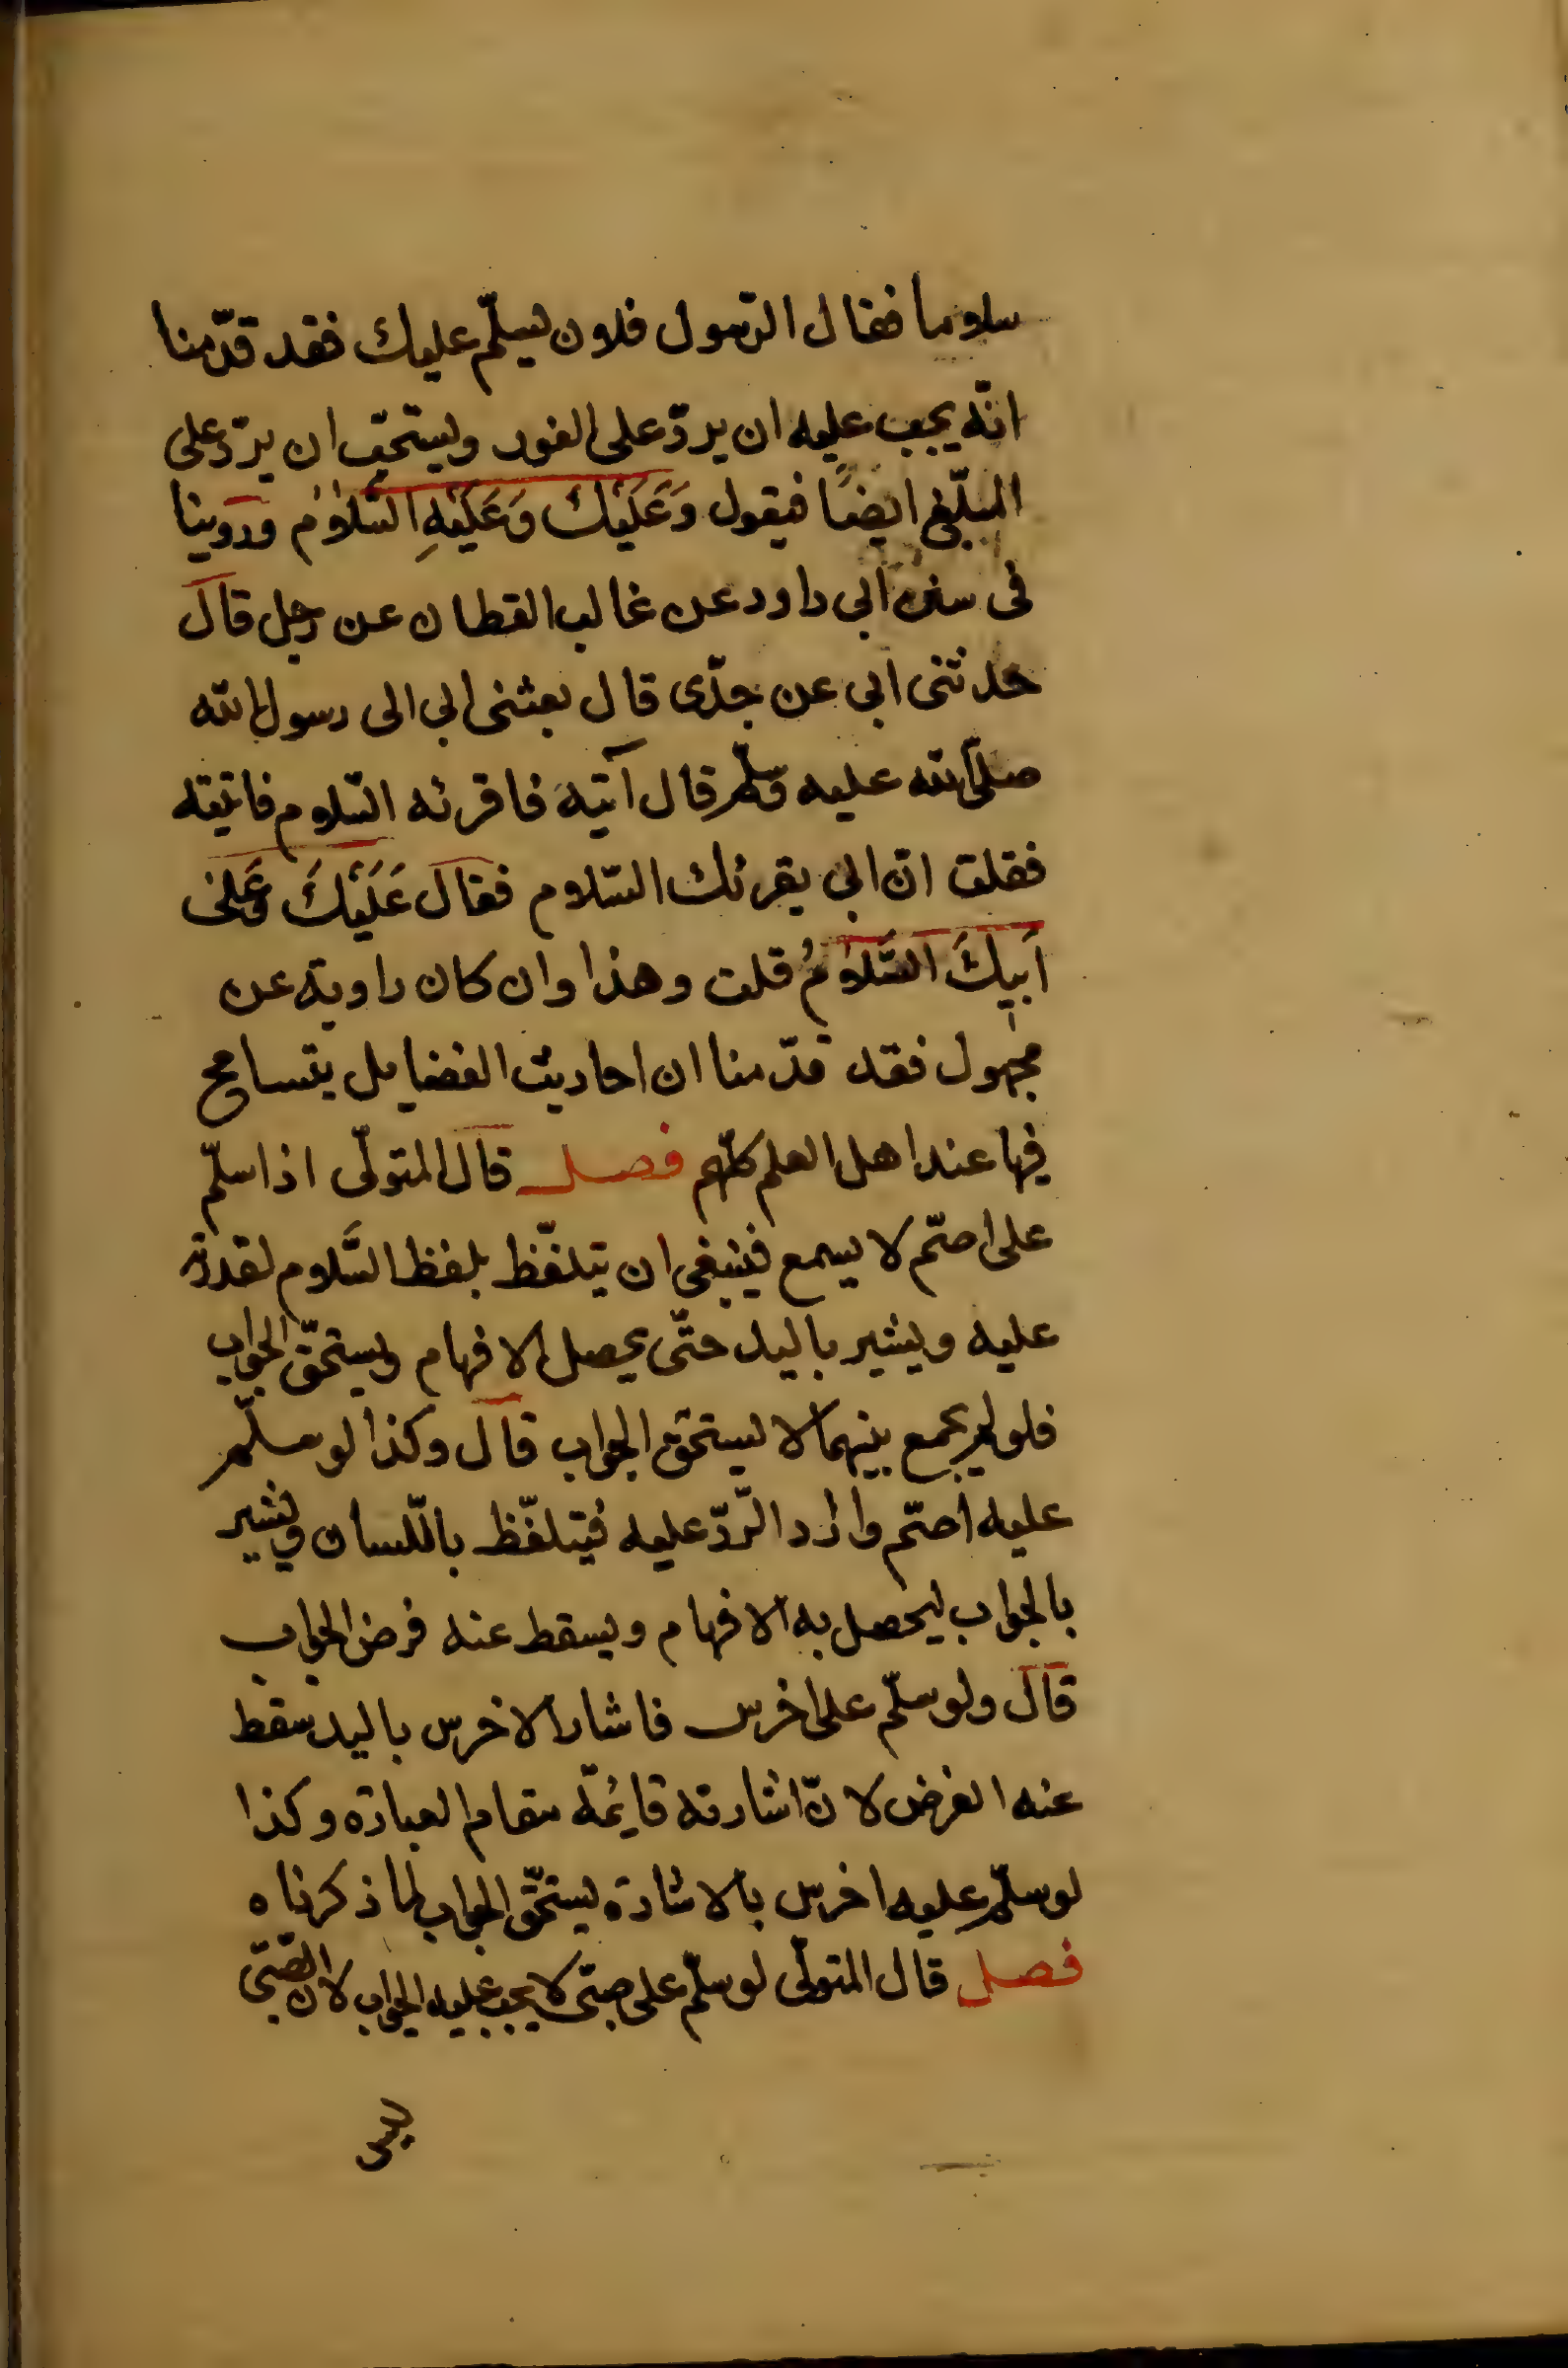 سلاما فقال الرّسول فلان يسلّم عليك فقد قدّمنا
انّه يجب عليه ان يردّ على الفور ويستحبّ ان يردّ على
المبلّغ ايضًا فيقول وَعَلَيْكَ وَعَلَيْهِ السَّلَامُ وروينا
فى سنن ابى داود عن غالب القطان عن رجل قال
حدثنى ابى عن جدّى قال بعثنى ابى الى رسول الله
صلّى الله عليه وسلّم قال آتيه فاقرئه السّلام فاتيته
فقلت انّ ابى يقرئك السّلام فقال عَلَيْكَ وَعَلىٰ
اَبيكَ السَّلَامُ قلت وهذا وان كان راويه عن
مجهول فقد قدّمنا ان احاديث الفضايل يتسامح
فيها عند اهل العلم كلّهم فصل قال المتولّى اذا سلّم
على اصمّ لا يسمع فينبغى ان يتلفّظ بلفظ السَّلام لقدرته
عليه ويشير باليد حتّى يحصل الافهام ويستحقّ الجواب
فلو لم يجمع بينهما لا يستحقّ الجواب قال وكذا لو سلّم
عليه اصمّ واراد الرّدّ عليه فيتلفّظ باللّسان ويشير
بالجواب ليحصل به الافهام ويسقط عنه فرض الجواب
قال ولو سلّم على اخرس فاشار الاخرس باليد سقط
عنه الفرض لانّ اشارته قائمة مقام العبارة وكذا
لو سلّم عليه اخرس بالاشارة يستحقّ الجواب لما ذكرناه
فصل قال المتولّى لو سلّم على صبّى لا يجب عليه الجواب لانّ الصّبّى
ليس